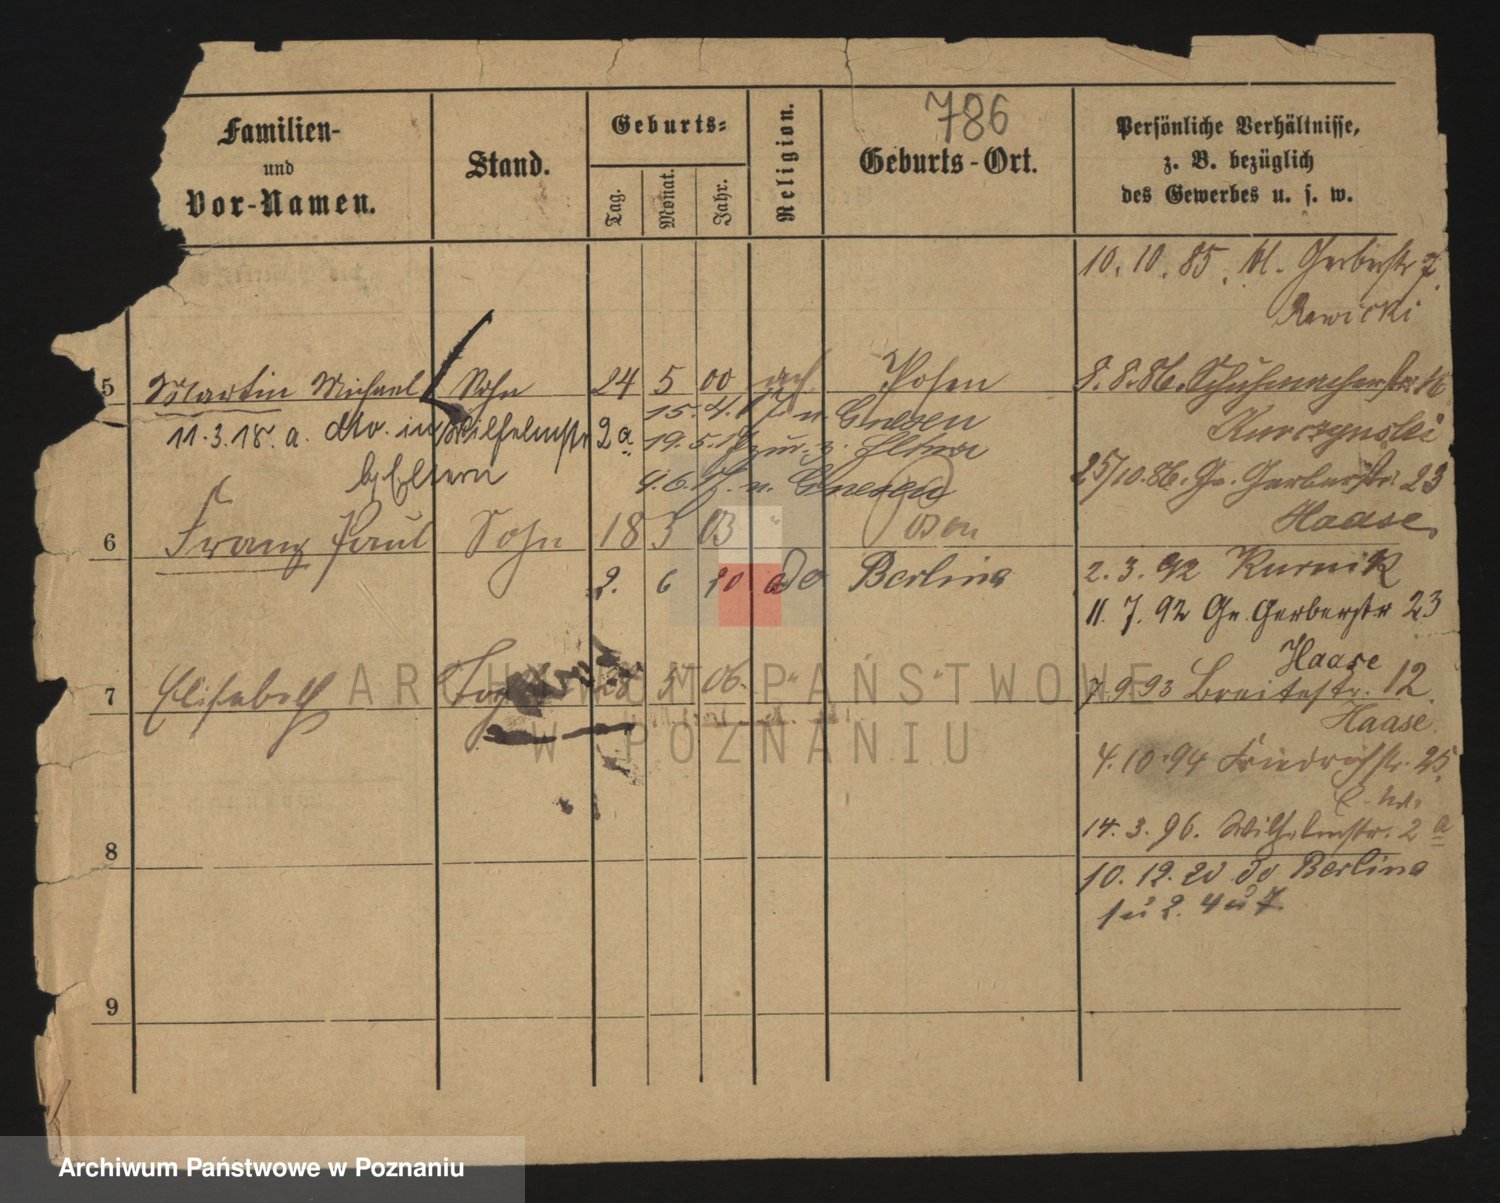 786
Familien-
und
Vor-Namen.
Stand.
Geburts-
Tag.
Monat.
Jahr.
Religion.
Geburts-Ort.
Persönliche Verhältnisse,
z. B. bezüglich
des Gewerbes u. s. w.
10. 10. 85. Kl. Gerberstr 7
Rawicki
5 Martin Michael Sohn 24 5 00 Posen
8. 8. 86. Schuhmacherstr. 16
11. 3. 18. a. dto. in Wilhelmstr 2a
b/ Eltern
15. 4. 17. n. Gnesen
19. 5. 17 zur. z. Eltern
4. 6. 17. n. Gnesen
25/10. 86. Gr. Gerberstr. 23
Haase
6 Franz Paul Sohn 18 5 03 " Posen
2. 6 20 do Berlin
2. 3. 92 Kurnik
11. 7. 92 Gr. Gerberstr 23
Haase
7 Elisabeth 28 5 06. " "
7. 9 93 Breitestr. 12
Haase
4. 10. 94 Friedrichstr. 25.
8
14. 3. 96. Wilhelmstr. 2 a
10. 12. 20 do Berlin
1 u 2. 4 u 7.
9
ARCHIWUM PAŃSTWOWE
W POZNANIU
Archiwum Państwowe w Poznaniu